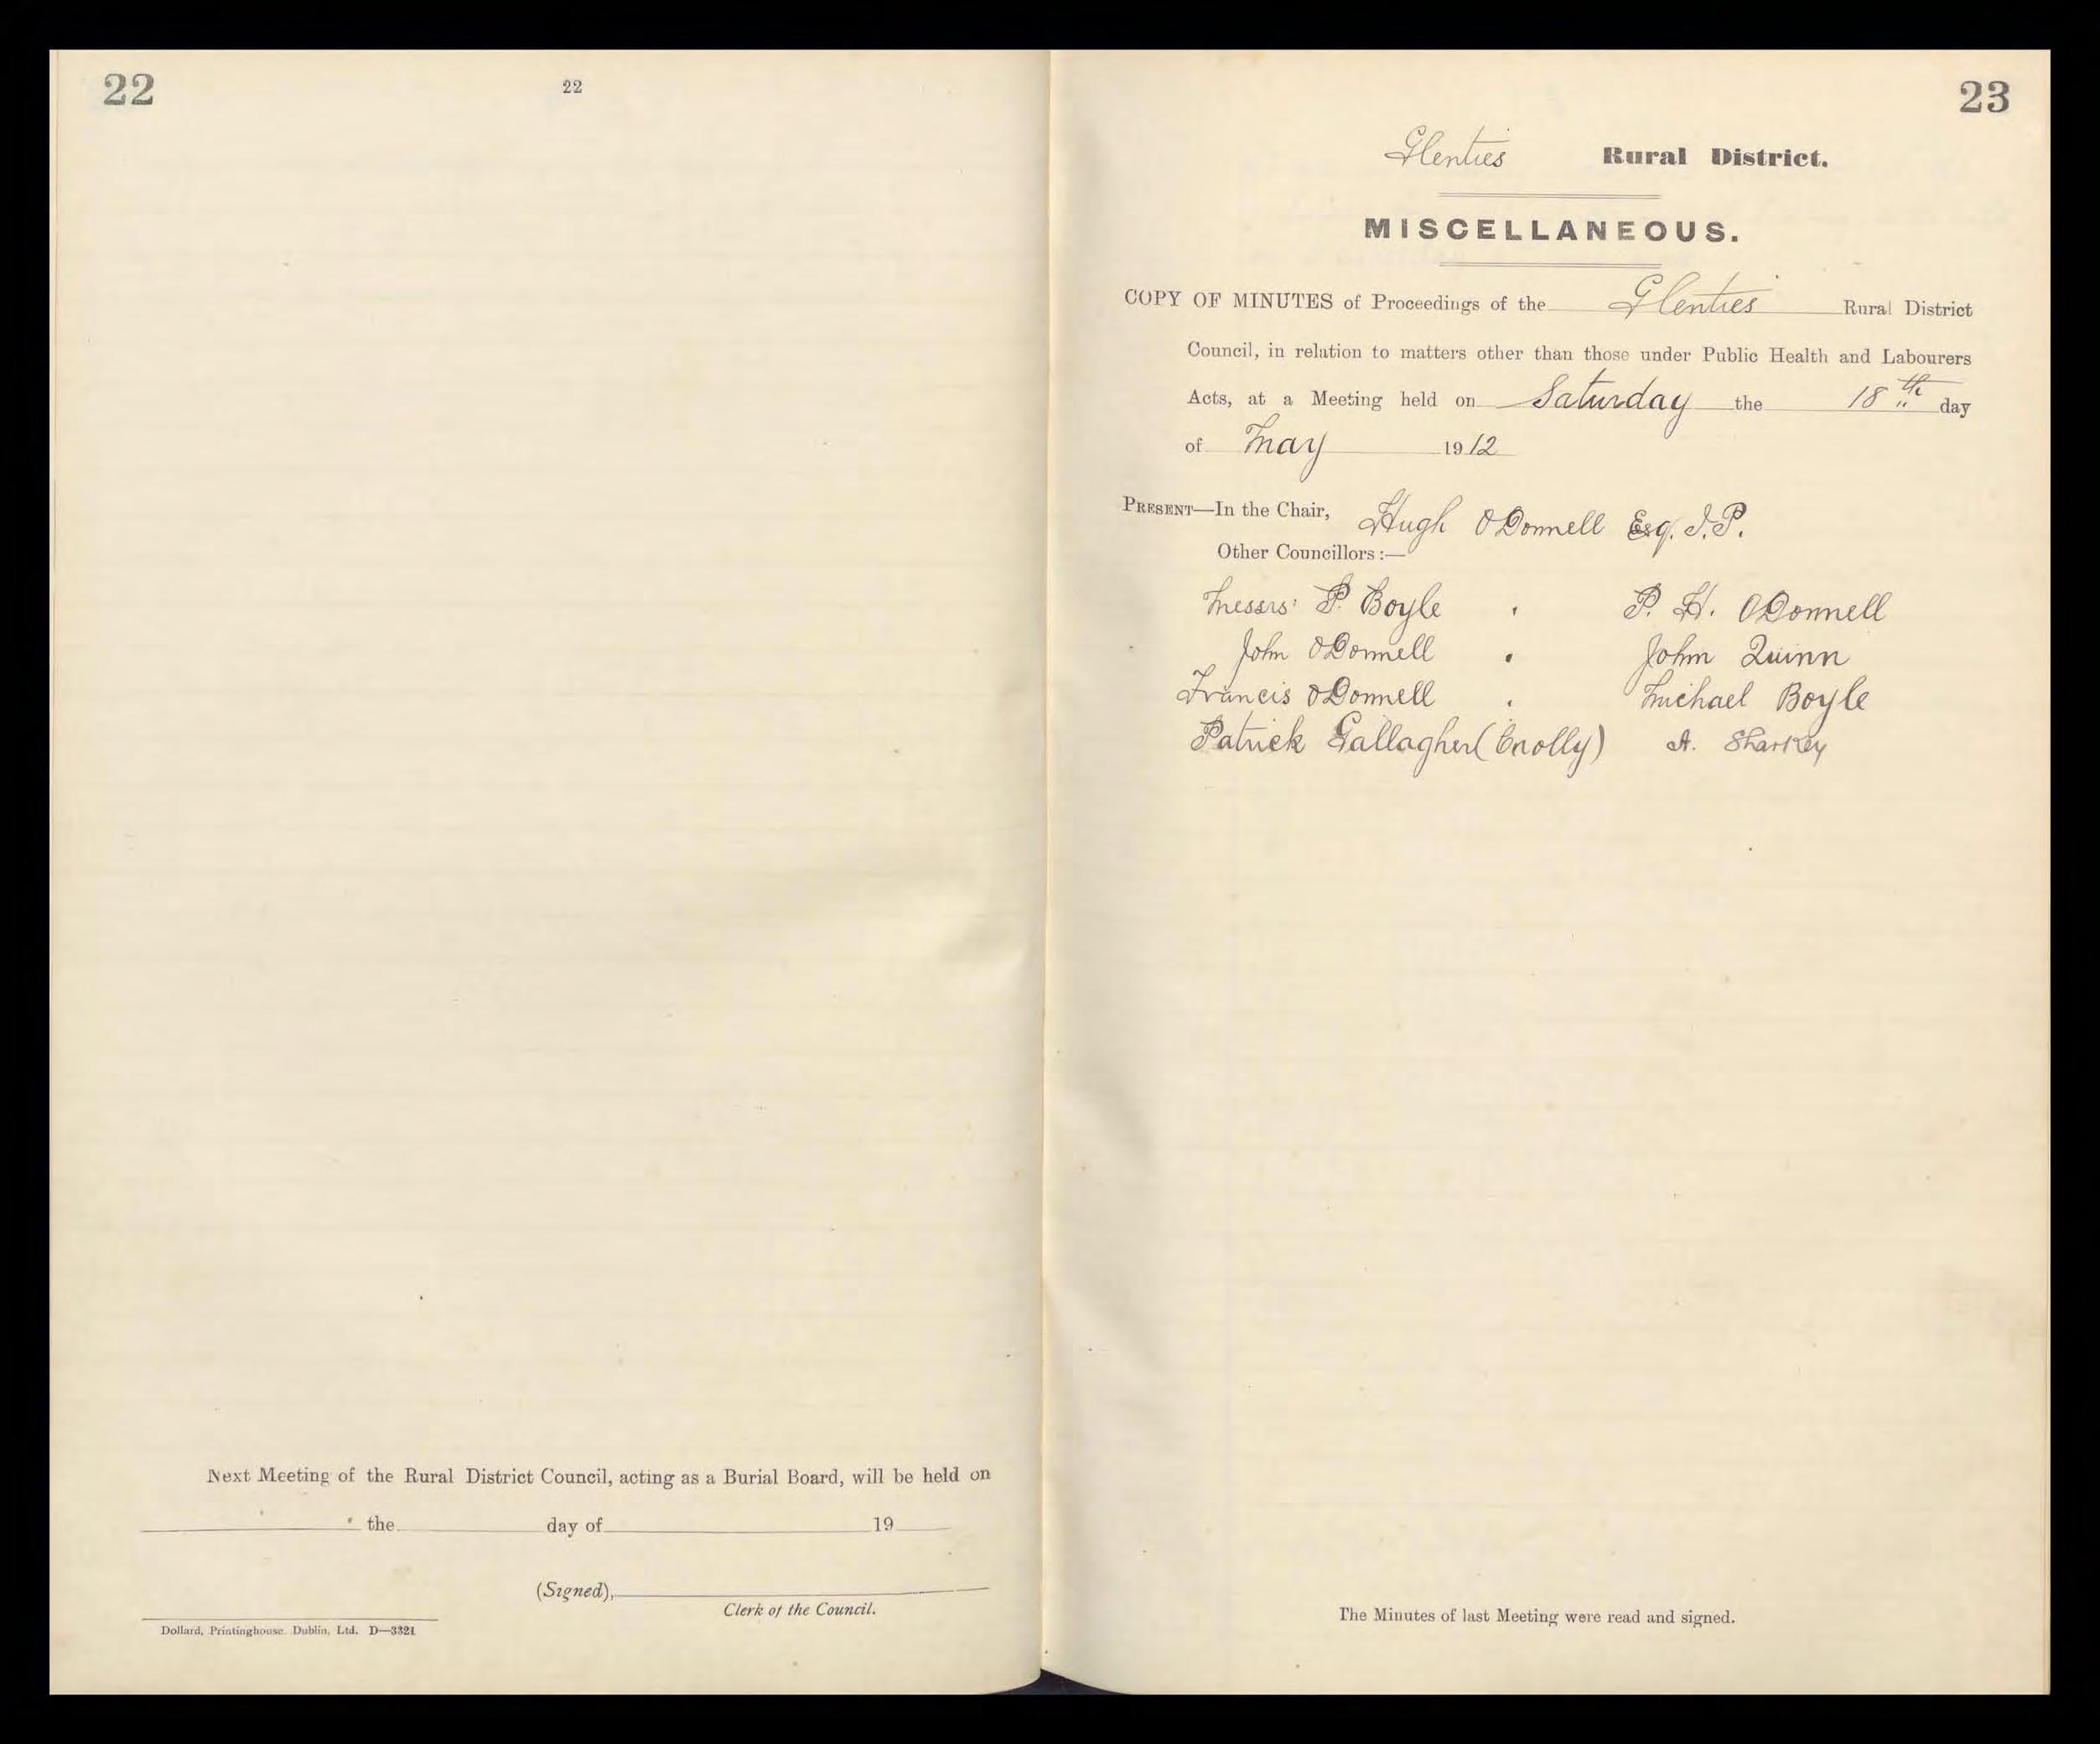 22
22
Next Meeting of the Rural District Council, acting as a Burial Board, will be held on
the day of 19
(Signed),
Clerk of the Council.
Dollard, Printinghouse, Dublin, Ltd. D—3321
23
Glenties Rural District.
MISCELLANEOUS.
COPY OF MINUTES of Proceedings of the Glenties Rural District
Council, in relation to matters other than those under Public Health and Labourers
Acts, at a Meeting held on Saturday the 18th day
of May 1912
PRESENT—In the Chair, Hugh ODonnell Esq. J.P.
Other Councillors:—
Messrs: P. Boyle P. H. ODonnell
John ODonnell John Quinn
Francis ODonnell Michael Boyle
Patrick Gallagher (Crolly) A. Sharkey
The Minutes of last Meeting were read and signed.